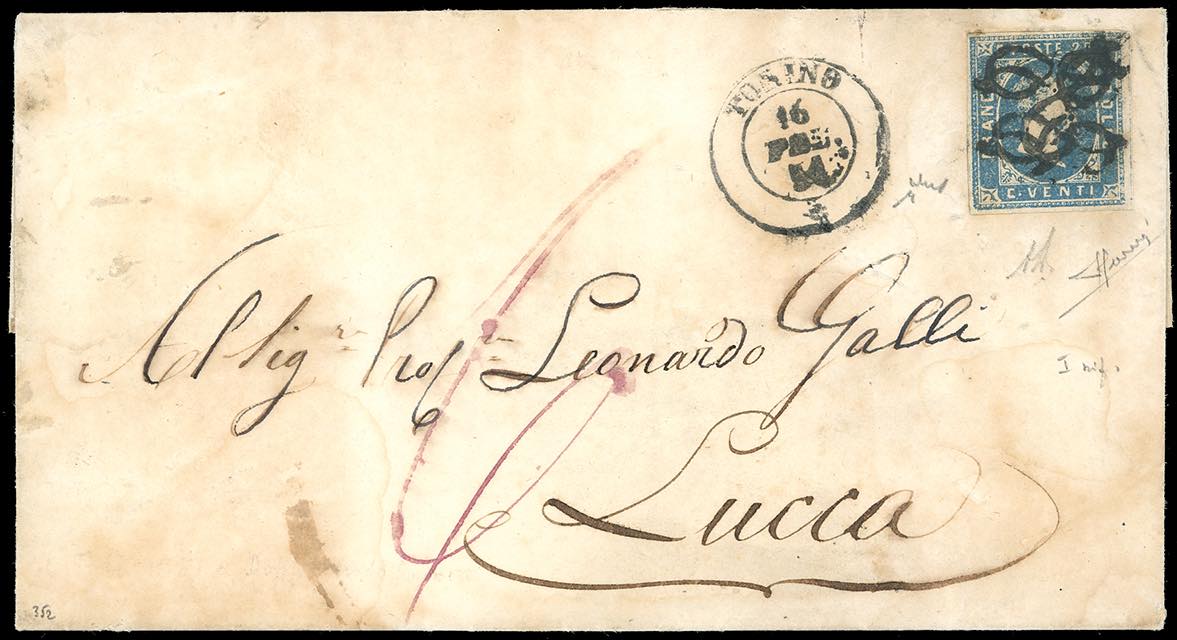 TORINO
16
FBE.
54
FRANCO
POSTE 20
C. VENTI
Al Sig.re Prof.re Leonardo Galli
Lucca
352